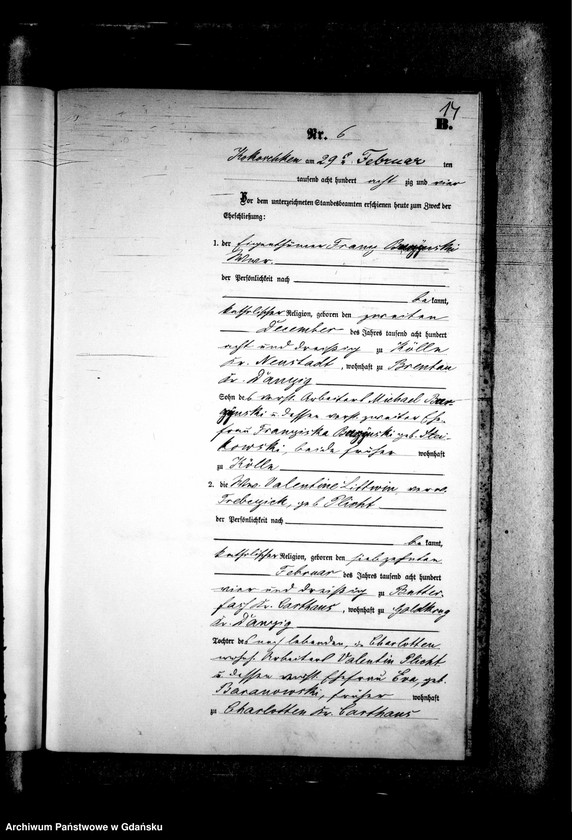 17
B.
Nr. 6
Kokoschken am 29. Februar ten
tausend acht hundert acht zig und vier
Vor dem unterzeichneten Standesbeamten erschienen heute zum Zweck der
Eheschließung:
1. der Eigenthümer Franz
Wwr.
der Persönlichkeit nach
be kannt,
katholischer Religion, geboren den zweiten
December des Jahres tausend acht hundert
acht und dreißig zu Kölln
Kr. Neustadt, wohnhaft zu Brentau
Kr. Danzig
Sohn des verst. Arbeiters Michael
u. dessen verst. zweiter Ehe-
frau Franziska geb.
kowski, beide früher wohnhaft
zu Kölln
2. die Wwe. Valentine Littwin, verw.
geb. Plicht
der Persönlichkeit nach
be kannt,
katholischer Religion, geboren den siebzehnten
Februar des Jahres tausend acht hundert
vier und dreißig zu Butter-
faß Kr. Carthaus, wohnhaft zu Goldkrug
Kr. Danzig
Tochter des noch lebenden, in Charlotten
wohnh. Arbeiters Valentin Plicht
u. dessen verst. Ehefrau Eva, geb.
Baranowski, früher wohnhaft
zu Charlotten Kr. Carthaus
Archiwum Państwowe w Gdańsku